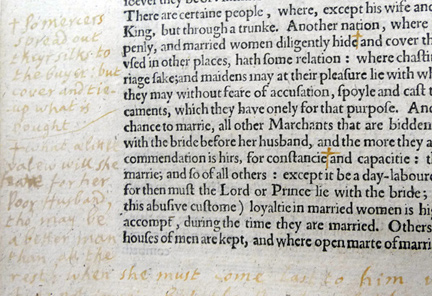 soever they be.
There are certaine people, where, except his wife and
King, but through a trunke. Another nation, where
penly, and married women diligently hide and cover th
vsed in other places, hath some relation: where chasti
riage sake; and maidens may at their pleasure lie with wh
they may without feare of accusation, spoyle and cast t
caments, which they have onely for that purpose. And
chance to marrie, all other Marchants that are bidden
with the bride before her husband, and the more they a
commendation is hirs, for constancie and capacitie: th
marrie; and so of all others: except it be a day-laboure
for then must the Lord or Prince lie with the bride;
this abusive custome) loyaltie in married women is hig
accompt, during the time they are married. Others
houses of men are kept, and where open marte of marri
+ So mercers
spread out
theyr silks to
the buyer: but
cover and tie-
up what is
bought
+ what a like
will she
have for her
Poor Husband,
the may be
a better man
than all the
rest: when she must come last to him